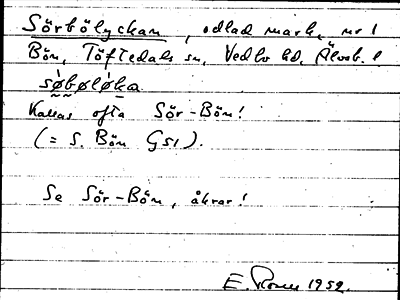 Sörbölyckan, odlad mark, nr 1
Bön, Töftedals sn, Vedbo hd, Älvsb. l
søbøløka
Kallas ofta Sör-Bön!
(= S. Bön G51).
Se Sör-Bön, åkrar!
E. 1952.